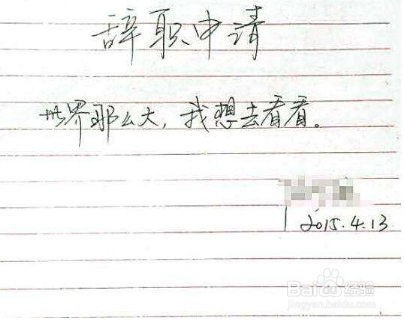 辞职申请
世界那么大，我想去看看。
2015.4.13
Baidu经验
jingyan.baidu.com